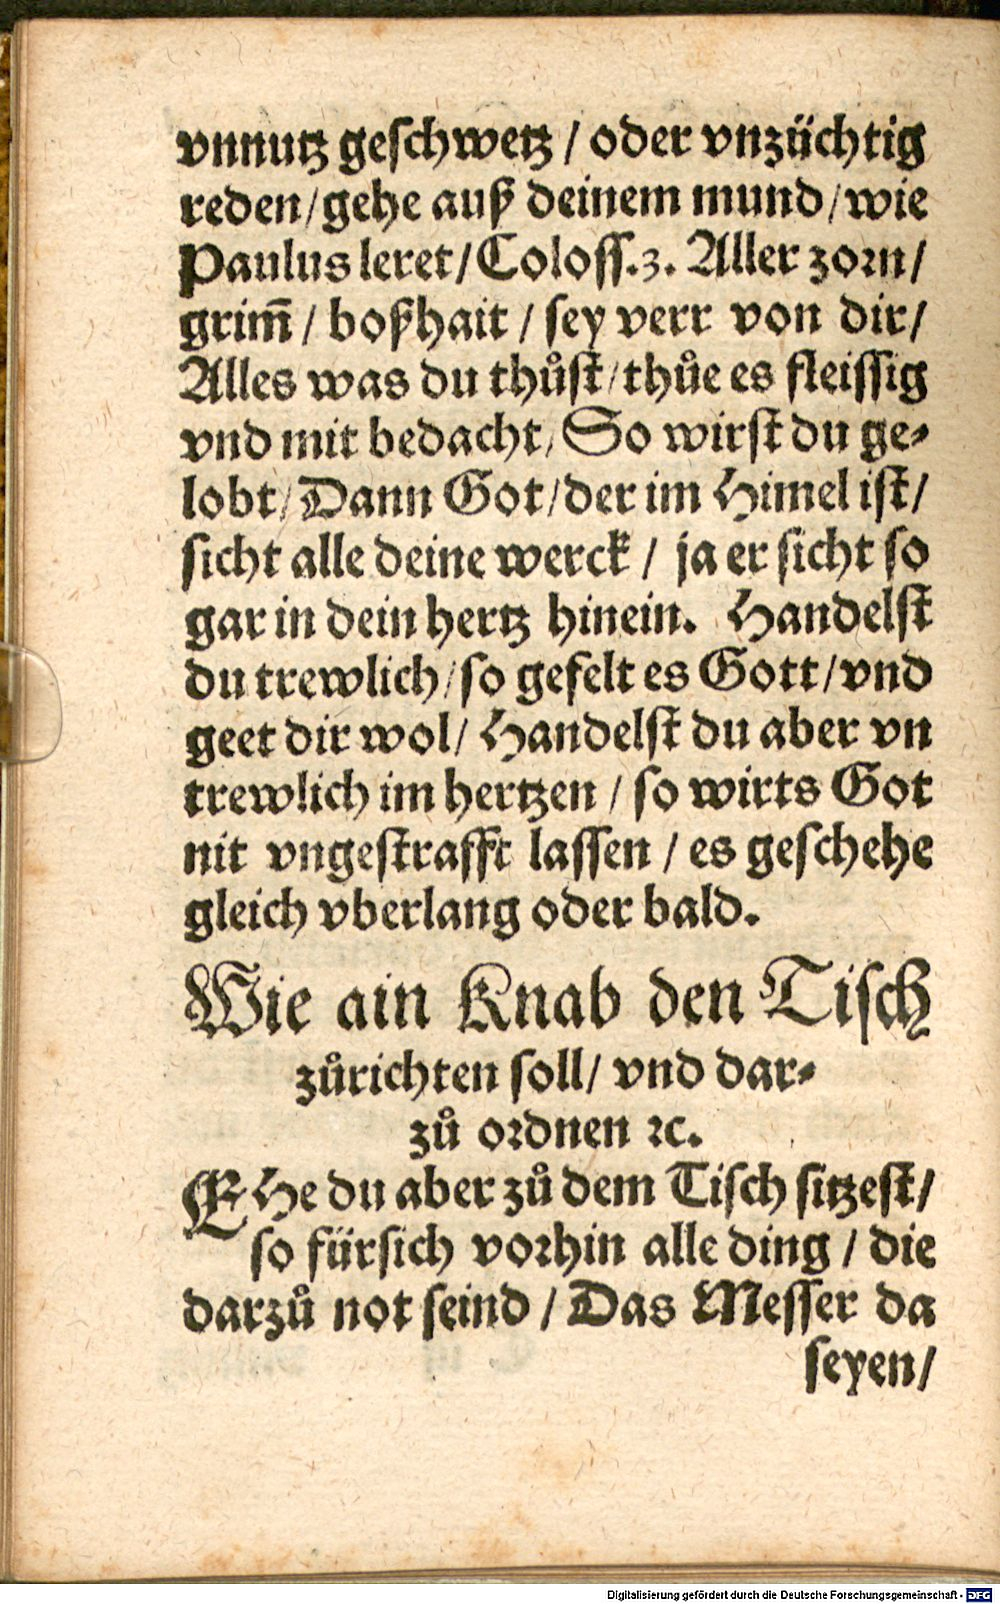 vnnutz geschwetz / oder vnzüchtig
reden / gehe auß deinem mund / wie
Paulus leret / Coloss. 3. Aller zorn /
grim̃ / boßhait / sey verr von dir /
Alles was du thůst / thůe es fleissig
vnd mit bedacht / So wirst du ge-
lobt / Dann Got / der im Himel ist /
sicht alle deine werck / ja er sicht so
gar in dein hertz hinein. Handelst
du trewlich / so gefelt es Gott / vnd
geet dir wol / Handelst du aber vn
trewlich im hertzen / so wirts Got
nit vngestrafft lassen / es geschehe
gleich vberlang oder bald.
Wie ain Knab den Tisch
zůrichten soll / vnd dar-
zů ordnen ꝛc.
EHe du aber zů dem Tisch sitzest /
so fürsich vorhin alle ding / die
darzů not seind / Das Messer da
seyen /
Digitalisierung gefördert durch die Deutsche Forschungsgemeinschaft - DFG